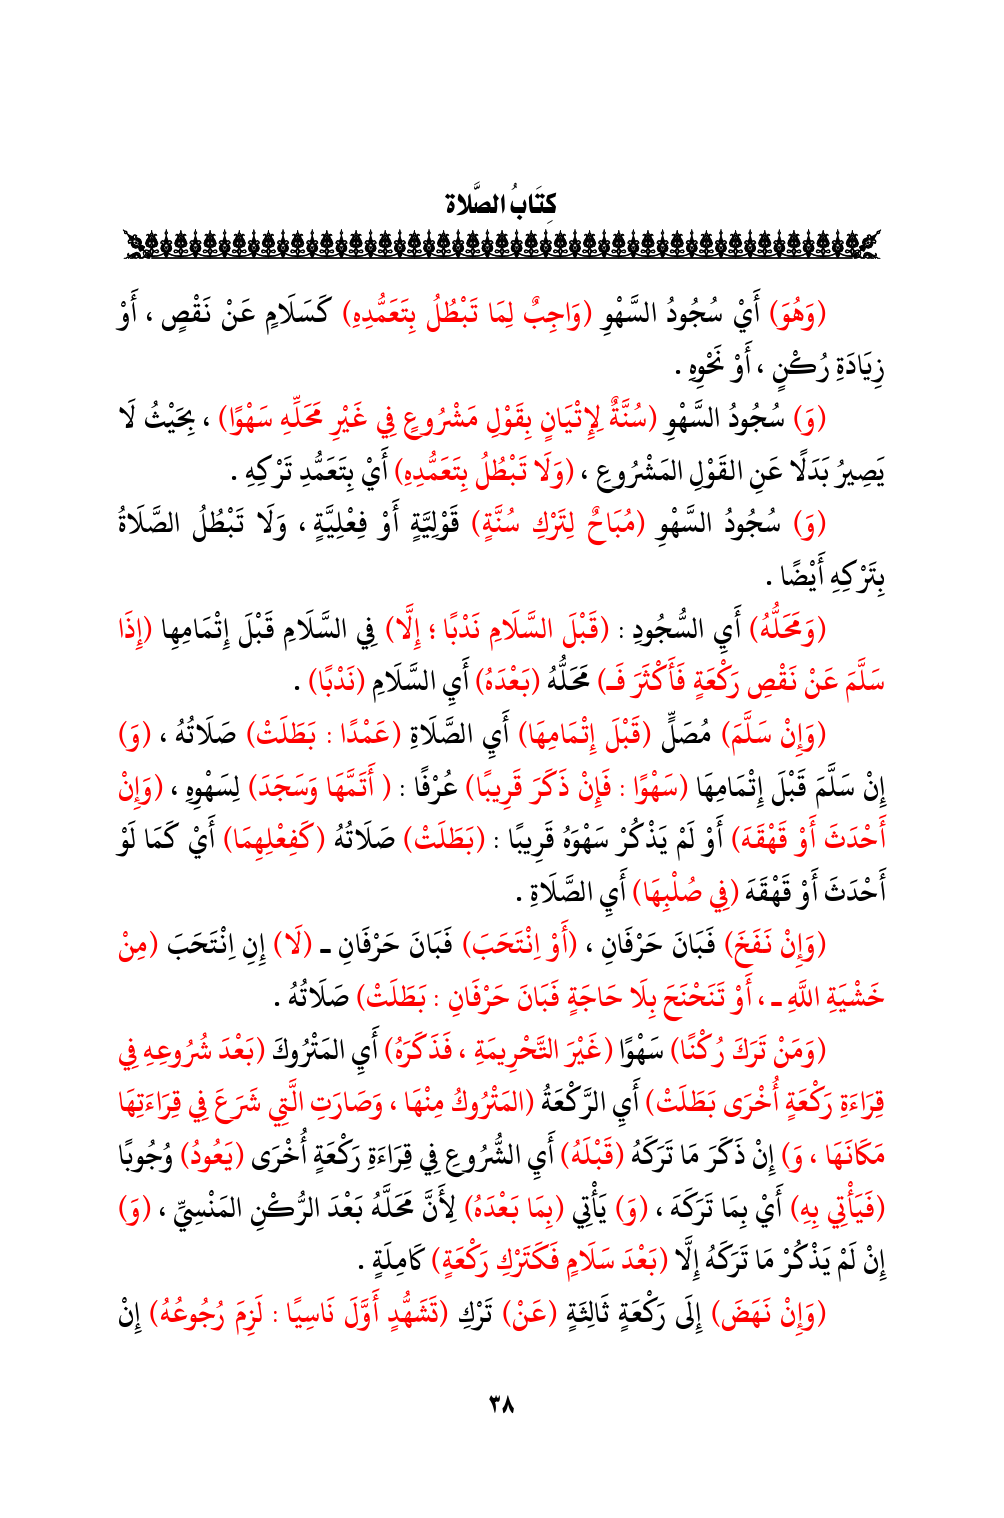 كِتَابُ الصَّلاة
(وَهُوَ) أَيْ سُجُودُ السَّهْوِ (وَاجِبٌ لِمَا تَبْطُلُ بِتَعَمُّدِهِ) كَسَلَامٍ عَنْ نَقْصٍ ، أَوْ
زِيَادَةِ رُكْنٍ ، أَوْ نَحْوِهِ .
(وَ) سُجُودُ السَّهْوِ (سُنَّةٌ لِإِتْيَانٍ بِقَوْلٍ مَشْرُوعٍ فِي غَيْرِ مَحَلِّهِ سَهْوًا) ، بِحَيْثُ لَا
يَصِيرُ بَدَلًا عَنِ القَوْلِ المَشْرُوعِ ، (وَلَا تَبْطُلُ بِتَعَمُّدِهِ) أَيْ بِتَعَمُّدِ تَرْكِهِ .
(وَ) سُجُودُ السَّهْوِ (مُبَاحٌ لِتَرْكِ سُنَّةٍ) قَوْلِيَّةٍ أَوْ فِعْلِيَّةٍ ، وَلَا تَبْطُلُ الصَّلَاةُ
بِتَرْكِهِ أَيْضًا .
(وَمَحَلُّهُ) أَيِ السُّجُودِ : (قَبْلَ السَّلَامِ نَدْبًا ؛ إِلَّا) فِي السَّلَامِ قَبْلَ إِتْمَامِهِا (إِذَا
سَلَّمَ عَنْ نَقْصِ رَكْعَةٍ فَأَكْثَرَ فَـ) مَحَلُّهُ (بَعْدَهُ) أَيِ السَّلَامِ (نَدْبًا) .
(وَإِنْ سَلَّمَ) مُصَلٍّ (قَبْلَ إِتْمَامِهَا) أَيِ الصَّلَاةِ (عَمْدًا : بَطَلَتْ) صَلَاتُهُ ، (وَ)
إِنْ سَلَّمَ قَبْلَ إِتْمَامِهَا (سَهْوًا : فَإِنْ ذَكَرَ قَرِيبًا) عُرْفًا : ( أَتَمَّهَا وَسَجَدَ) لِسَهْوِهِ ، (وَإِنْ
أَحْدَثَ أَوْ قَهْقَهَ) أَوْ لَمْ يَذْكُرْ سَهْوَهُ قَرِيبًا : (بَطَلَتْ) صَلَاتُهُ (كَفِعْلِهِمَا) أَيْ كَمَا لَوْ
أَحْدَثَ أَوْ قَهْقَهَ (فِي صُلْبِهَا) أَيِ الصَّلَاةِ .
(وَإِنْ نَفَخَ) فَبَانَ حَرْفَانِ ، (أَوْ اِنْتَحَبَ) فَبَانَ حَرْفَانِ ـ (لَا) إِنِ اِنْتَحَبَ (مِنْ
خَشْيَةِ اللَّهِ ـ ، أَوْ تَنَحْنَحَ بِلَا حَاجَةٍ فَبَانَ حَرْفَانِ : بَطَلَتْ) صَلَاتُهُ .
(وَمَنْ تَرَكَ رُكْنًا) سَهْوًا (غَيْرَ التَّحْرِيمَةِ ، فَذَكَرَهُ) أَيِ المَتْرُوكَ (بَعْدَ شُرُوعِهِ فِي
قِرَاءَةِ رَكْعَةٍ أُخْرَى بَطَلَتْ) أَيِ الرَّكْعَةُ (المَتْرُوكُ مِنْهَا ، وَصَارَتِ الَّتِي شَرَعَ فِي قِرَاءَتِهَا
مَكَانَهَا ، وَ) إِنْ ذَكَرَ مَا تَرَكَهُ (قَبْلَهُ) أَيِ الشُّرُوعِ فِي قِرَاءَةِ رَكْعَةٍ أُخْرَى (يَعُودُ) وُجُوبًا
(فَيَأْتِي بِهِ) أَيْ بِمَا تَرَكَهَ ، (وَ) يَأْتِي (بِمَا بَعْدَهُ) لِأَنَّ مَحَلَّهُ بَعْدَ الرُّكْنِ المَنْسِيِّ ، (وَ)
إِنْ لَمْ يَذْكُرْ مَا تَرَكَهُ إِلَّا (بَعْدَ سَلَامٍ فَكَتَرْكِ رَكْعَةٍ) كَامِلَةٍ .
(وَإِنْ نَهَضَ) إِلَى رَكْعَةٍ ثَالِثَةٍ (عَنْ) تَرْكِ (تَشَهُّدٍ أَوَّلَ نَاسِيًا : لَزِمَ رُجُوعُهُ) إِنْ
٣٨